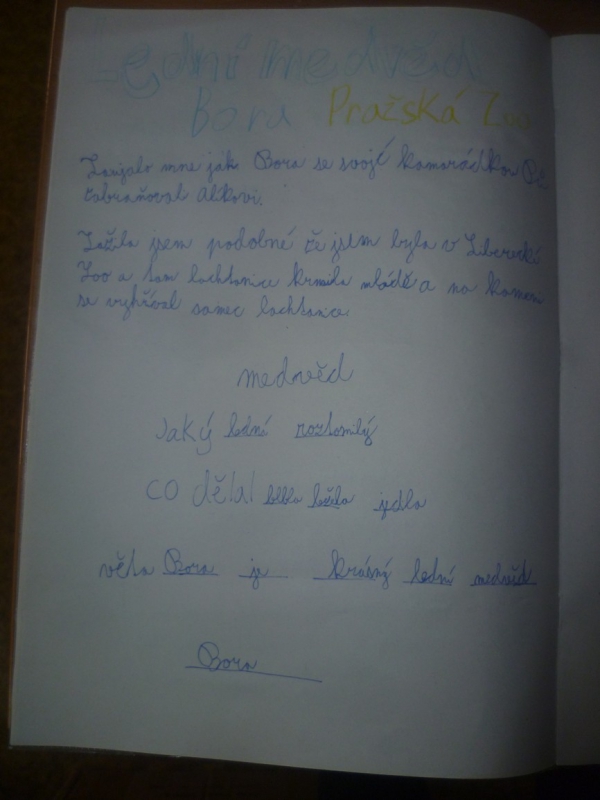 Lední medvěd
Bora Pražská Zoo
Zaujalo mne ják Bora se svojí kamarádkou
zabraňoval Alíkovi.
Zažila jsem podobné že jsem byla v Liberecki
Zoo a tam lachtanice krmila mládě a na kameni
se vyhříval samec lachtanice
medvěd
Jaký lední roztomilý
co dělal ležela jedla
věta Bora je krásný lední medvěd
Bora